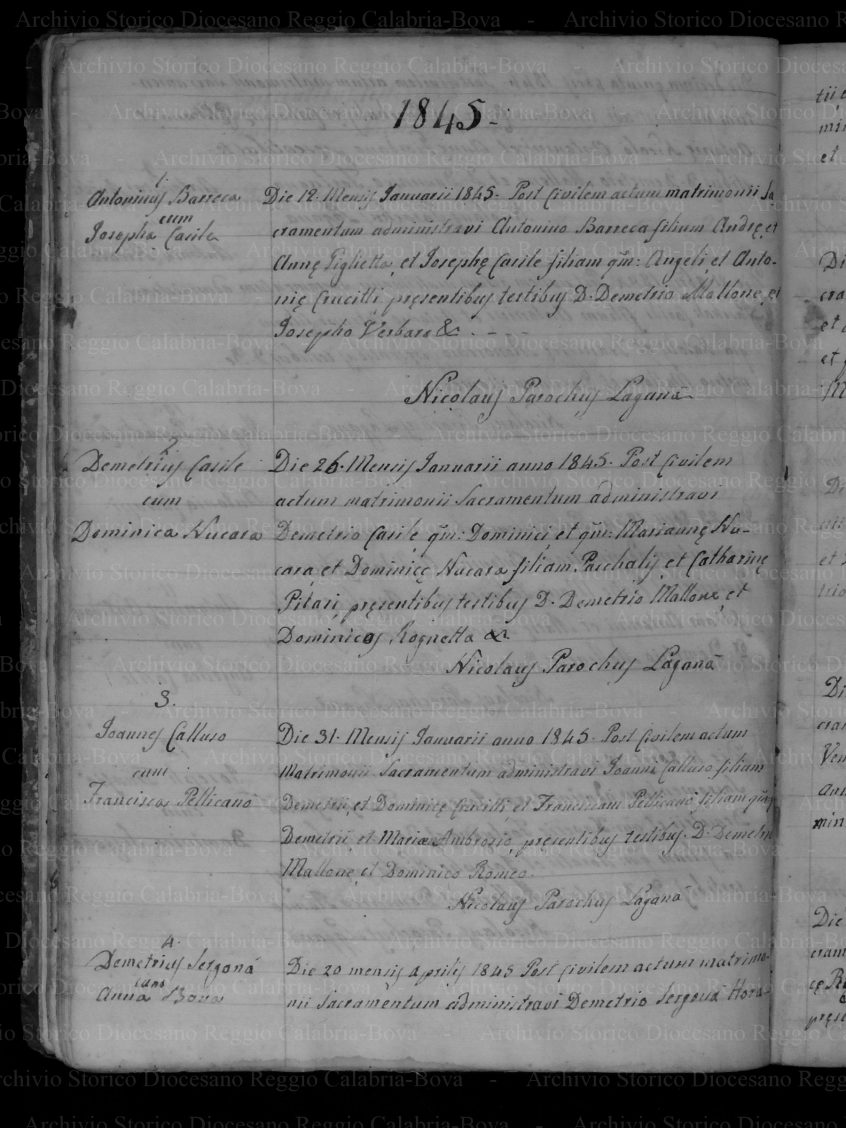 Archivio Storico Diocesano Reggio Calabria-Bova - Archivio Storico Diocesano
1845.
1.
Antoninus Barreca
cum
Josepha Casile
Die 12. Mensis Januarii 1845. Post Civilem actum matrimonii Sa
cramentum administravi Antonino Barreca filium Andrę, et
Annę Piglietta, et Josephę Casile filiam qm: Angeli, et Anto-
nię Crucitti, pręsentibus testibus D. Demetrio Mallone, et
Josepho Verbaro &. - - -
Nicolaus Parochus Laganà
2.
Demetrius Casile
cum
Dominica Nucara
Die 26. Mensis Januarii anno 1845. Post Civilem
actum matrimonii Sacramentum administravi
Demetrio Casile qm: Dominici, et qm: Mariannę Nu-
cara, et Dominicę Nucara filiam Paschalis, et Catharinę
Pitasi, pręsentibus testibus D. Demetrio Mallone, et
Dominicos Rognetta &
Nicolaus Parochus Laganà
3.
Joannes Calluso
cum
Francisca Pellicanò
Die 31. Mensis Januarii anno 1845. Post Civilem actum
Matrimonii Sacramentum administravi Joanni Calluso filium
Demetrii, et Dominicę Crucitti, et Franciscam Pellicanò filiam qm
Demetrii, et Maria Ambrosio, pręsentibus testibus D. Demetrio
Mallone, et Dominico Romeo.
Nicolaus Parochus Laganà
4.
Demetrius Sergonà
cum
Anna Bova
Die 20 mensis Aprilis 1845 Post Civilem actum matrimo-
nii Sacramentum administravi Demetrio Sergonà Hora-